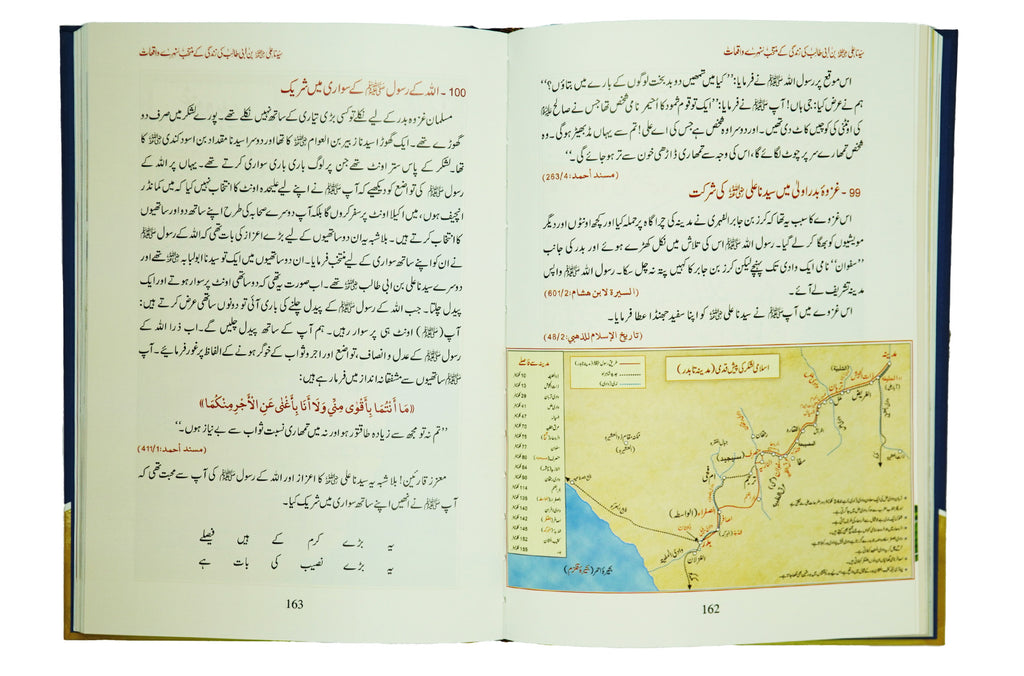 سیدنا علی رضی اللہ عنہ بن ابی طالب کی زندگی کے منتخب سنہرے واقعات
اس موقع پر رسول اللہ ﷺ نے فرمایا: ’’کیا میں تمھیں دو بدبخت لوگوں کے بارے میں بتاؤں؟‘‘
ہم نے عرض کیا: جی ہاں! آپ ﷺ نے فرمایا: ’’ایک تو قوم ثمود کا احیمر نامی شخص تھا جس نے صالح علیہ السلام
کی اونٹنی کی کوچیں کاٹ دی تھیں۔ اور دوسرا وہ شخص ہے جس کی اے علی! تم سے یہاں مڈبھیڑ ہوگی۔ وہ
شخص تمھارے سر پر چوٹ لگائے گا، اس کی وجہ سے تمھاری ڈاڑھی خون سے تر ہو جائے گی۔‘‘
(مسند أحمد: 263/4)
99 - غزوۂ بدر اولیٰ میں سیدنا علی رضی اللہ عنہ کی شرکت
اس غزوے کا سبب یہ تھا کہ کرز بن جابر الفہری نے مدینہ کی چراگاہ پر حملہ کیا اور کچھ اونٹوں اور دیگر
مویشیوں کو بھگا کر لے گیا۔ رسول اللہ ﷺ اس کی تلاش میں نکل کھڑے ہوئے اور بدر کی جانب
’’سفوان‘‘ نامی ایک وادی تک پہنچے لیکن کرز بن جابر کا کہیں پتہ نہ چل سکا۔ رسول اللہ ﷺ واپس
مدینہ تشریف لے آئے۔
(السیرۃ لابن ھشام: 601/2)
اس غزوے میں آپ ﷺ نے سیدنا علی رضی اللہ عنہ کو اپنا سفید جھنڈا عطا فرمایا۔
(تاریخ الإسلام للذھبي: 48/2)
اسلامی لشکر کی پیش قدمی (مدینہ تا بدر)
مدینہ سے فاصلے
مدینہ
بحیرۂ احمر (بحیرۂ قلزم)
162
سیدنا علی رضی اللہ عنہ بن ابی طالب کی زندگی کے منتخب سنہرے واقعات
100 - اللہ کے رسول ﷺ کے سواری میں شریک
مسلمان غزوہ بدر کے لیے نکلے تو کسی بڑی تیاری کے ساتھ نہیں نکلے تھے۔ پورے لشکر میں صرف دو
گھوڑے تھے۔ ایک گھوڑا سیدنا زبیر بن العوام رضی اللہ عنہ کا تھا اور دوسرا سیدنا مقداد بن اسود کندی رضی اللہ عنہ کا
تھا۔ لشکر کے پاس ستر اونٹ تھے جن پر لوگ باری باری سواری کرتے تھے۔ یہاں پر اللہ کے
رسول ﷺ کی تواضع کو دیکھیے کہ آپ ﷺ نے اپنے لیے علیحدہ اونٹ کا انتخاب نہیں کیا کہ میں کمانڈر
انچیف ہوں، میں اکیلا اونٹ پر سفر کروں گا بلکہ آپ دوسرے صحابہ کی طرح اپنے ساتھ دو اور ساتھیوں
کا انتخاب کرتے ہیں۔ بلاشبہ یہ ان دو ساتھیوں کے لیے بڑے اعزاز کی بات تھی کہ اللہ کے رسول ﷺ
نے ان کو اپنے ساتھ سواری کے لیے منتخب فرمایا۔ ان دو ساتھیوں میں ایک تو سیدنا ابولبابہ رضی اللہ عنہ تھے اور
دوسرے سیدنا علی بن ابی طالب رضی اللہ عنہ تھے۔ اب صورت یہ تھی کہ دو ساتھی اونٹ پر سوار ہوتے اور ایک
پیدل چلتا۔ جب اللہ کے رسول ﷺ کے پیدل چلنے کی باری آئی تو دونوں ساتھی عرض کرتے ہیں:
آپ (ﷺ) اونٹ ہی پر سوار رہیں۔ ہم آپ کے ساتھ پیدل چلیں گے۔ اب ذرا اللہ کے
رسول ﷺ کے عدل و انصاف، تواضع اور اجر و ثواب کے خوگر ہونے کے الفاظ پر غور فرمائیے۔ آپ
ساتھیوں سے مشفقانہ انداز میں فرما رہے ہیں:
«مَا أَنْتُمَا بِأَقْوٰى مِنِّي وَلَا أَنَا بِأَغْنٰى عَنِ الْأَجْرِ مِنْكُمَا»
’’تم نہ تو مجھ سے زیادہ طاقتور ہو اور نہ میں تمھاری نسبت ثواب سے بے نیاز ہوں۔‘‘
(مسند أحمد: 411/1)
معزز قارئین! بلاشبہ یہ سیدنا علی رضی اللہ عنہ کا اعزاز اور اللہ کے رسول ﷺ کی آپ سے محبت تھی کہ
آپ ﷺ نے انھیں اپنے ساتھ سواری میں شریک کیا۔
یہ بڑے کرم کے ہیں فیصلے
یہ بڑے نصیب کی بات ہے
163